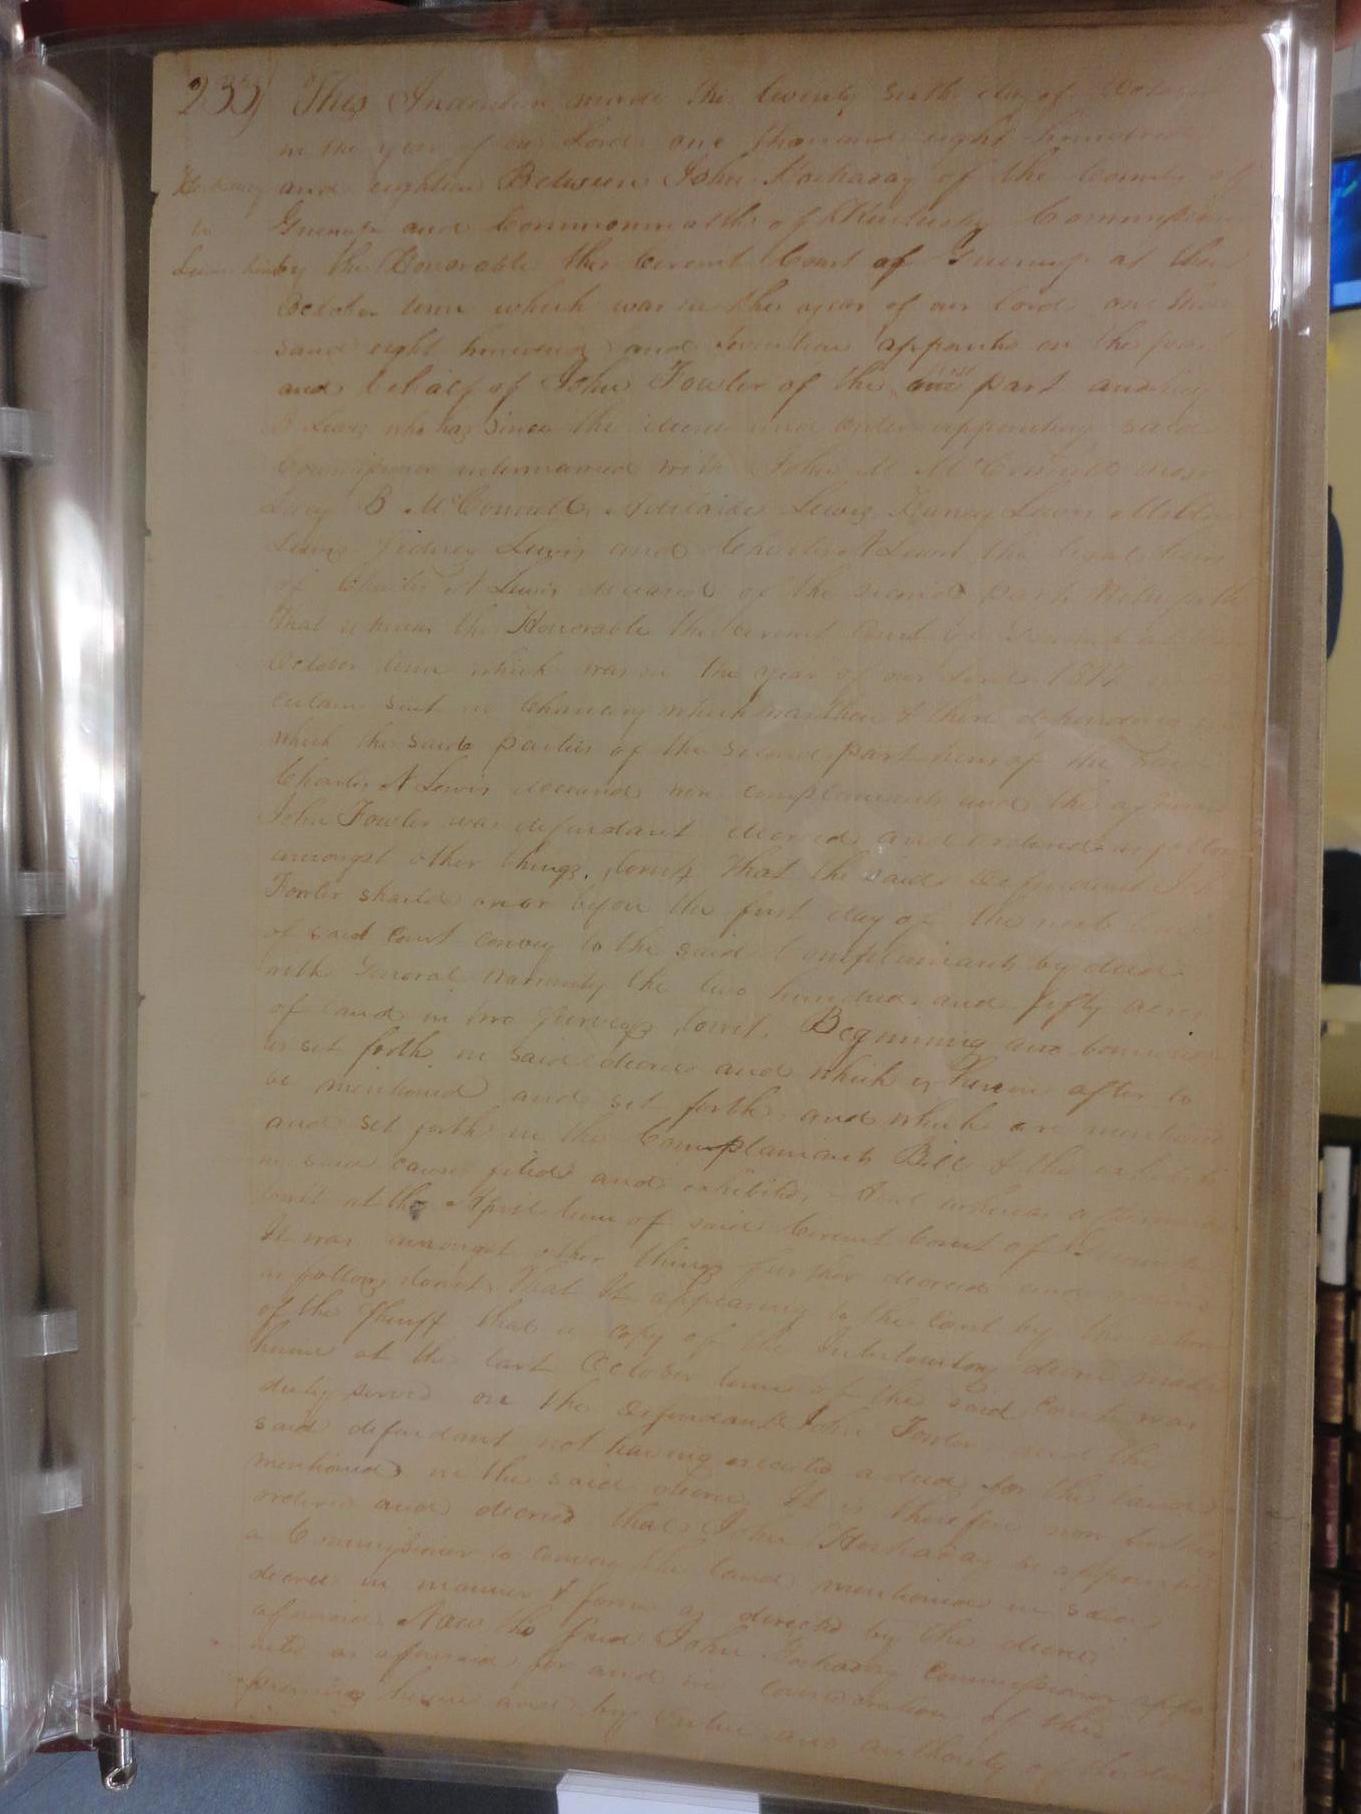 239) This Indenture made this twenty sixth day of October
in the year of our Lord one thousand eight hundred
and eighteen Between John Hockaday of the County of
Greenup and Commonwealth of Kentucky Commissioner
by the Honorable the Circuit Court of Greenup at the
October term which was in the year of our lord one thou
sand eight hundred and seventeen appointed on the part
and behalf of John Fowler of the one part and
B Lewis who has since the decree and order appointing said
Commissioner intermarried with John M McConnell now
Lucy B McConnell, Adelaide Lewis
Lewis Sidney Lewis and Lewis the legal heirs
of Charles N Lewis deceased of the second part Witnesseth
that whereas the Honorable the circuit Court of Greenup
October term which was in the year of our Lord 1817
certain suit in Chancery which was then & there depending
which the said parties of the second part heirs of the
Charles N Lewis deceased were complainants and the
John Fowler was defendant decreed and ordered as follows
amongst other things, towit, that the said defendant John
Fowler should on or before the first day of the next term
of said court convey to the said Complainants by deed
with General warranty the two hundred and fifty acres
of land in two surveys towit, Beginning and bounded
as set forth in said decree and which is herein after to
be mentioned and set forth and which are mentioned
and set forth in the Complainants Bill & the exhibits
in said cause filed and exhibited. And whereas
towit at the April term of said Circuit Court of Greenup
It was amongst other things further decreed and ordered
as follows towit, That It appearing to the Court by the return
of the Sheriff that a copy of the Interlocutory decree made
herein at the last October term of the said Court was
duly served on the defendant John Fowler and the
said defendant not having executed a deed for the land
mentioned in the said decree It is therefore now further
ordered and decreed that John Hockaday be appointed
a Commissioner to convey the land mentioned in said
decree in manner & form as directed by the decree
aforesaid. Now the said John Hockaday Commissioner appoi
nted as aforesaid for and in consideration of the
premises herein and by virtue and authority of the